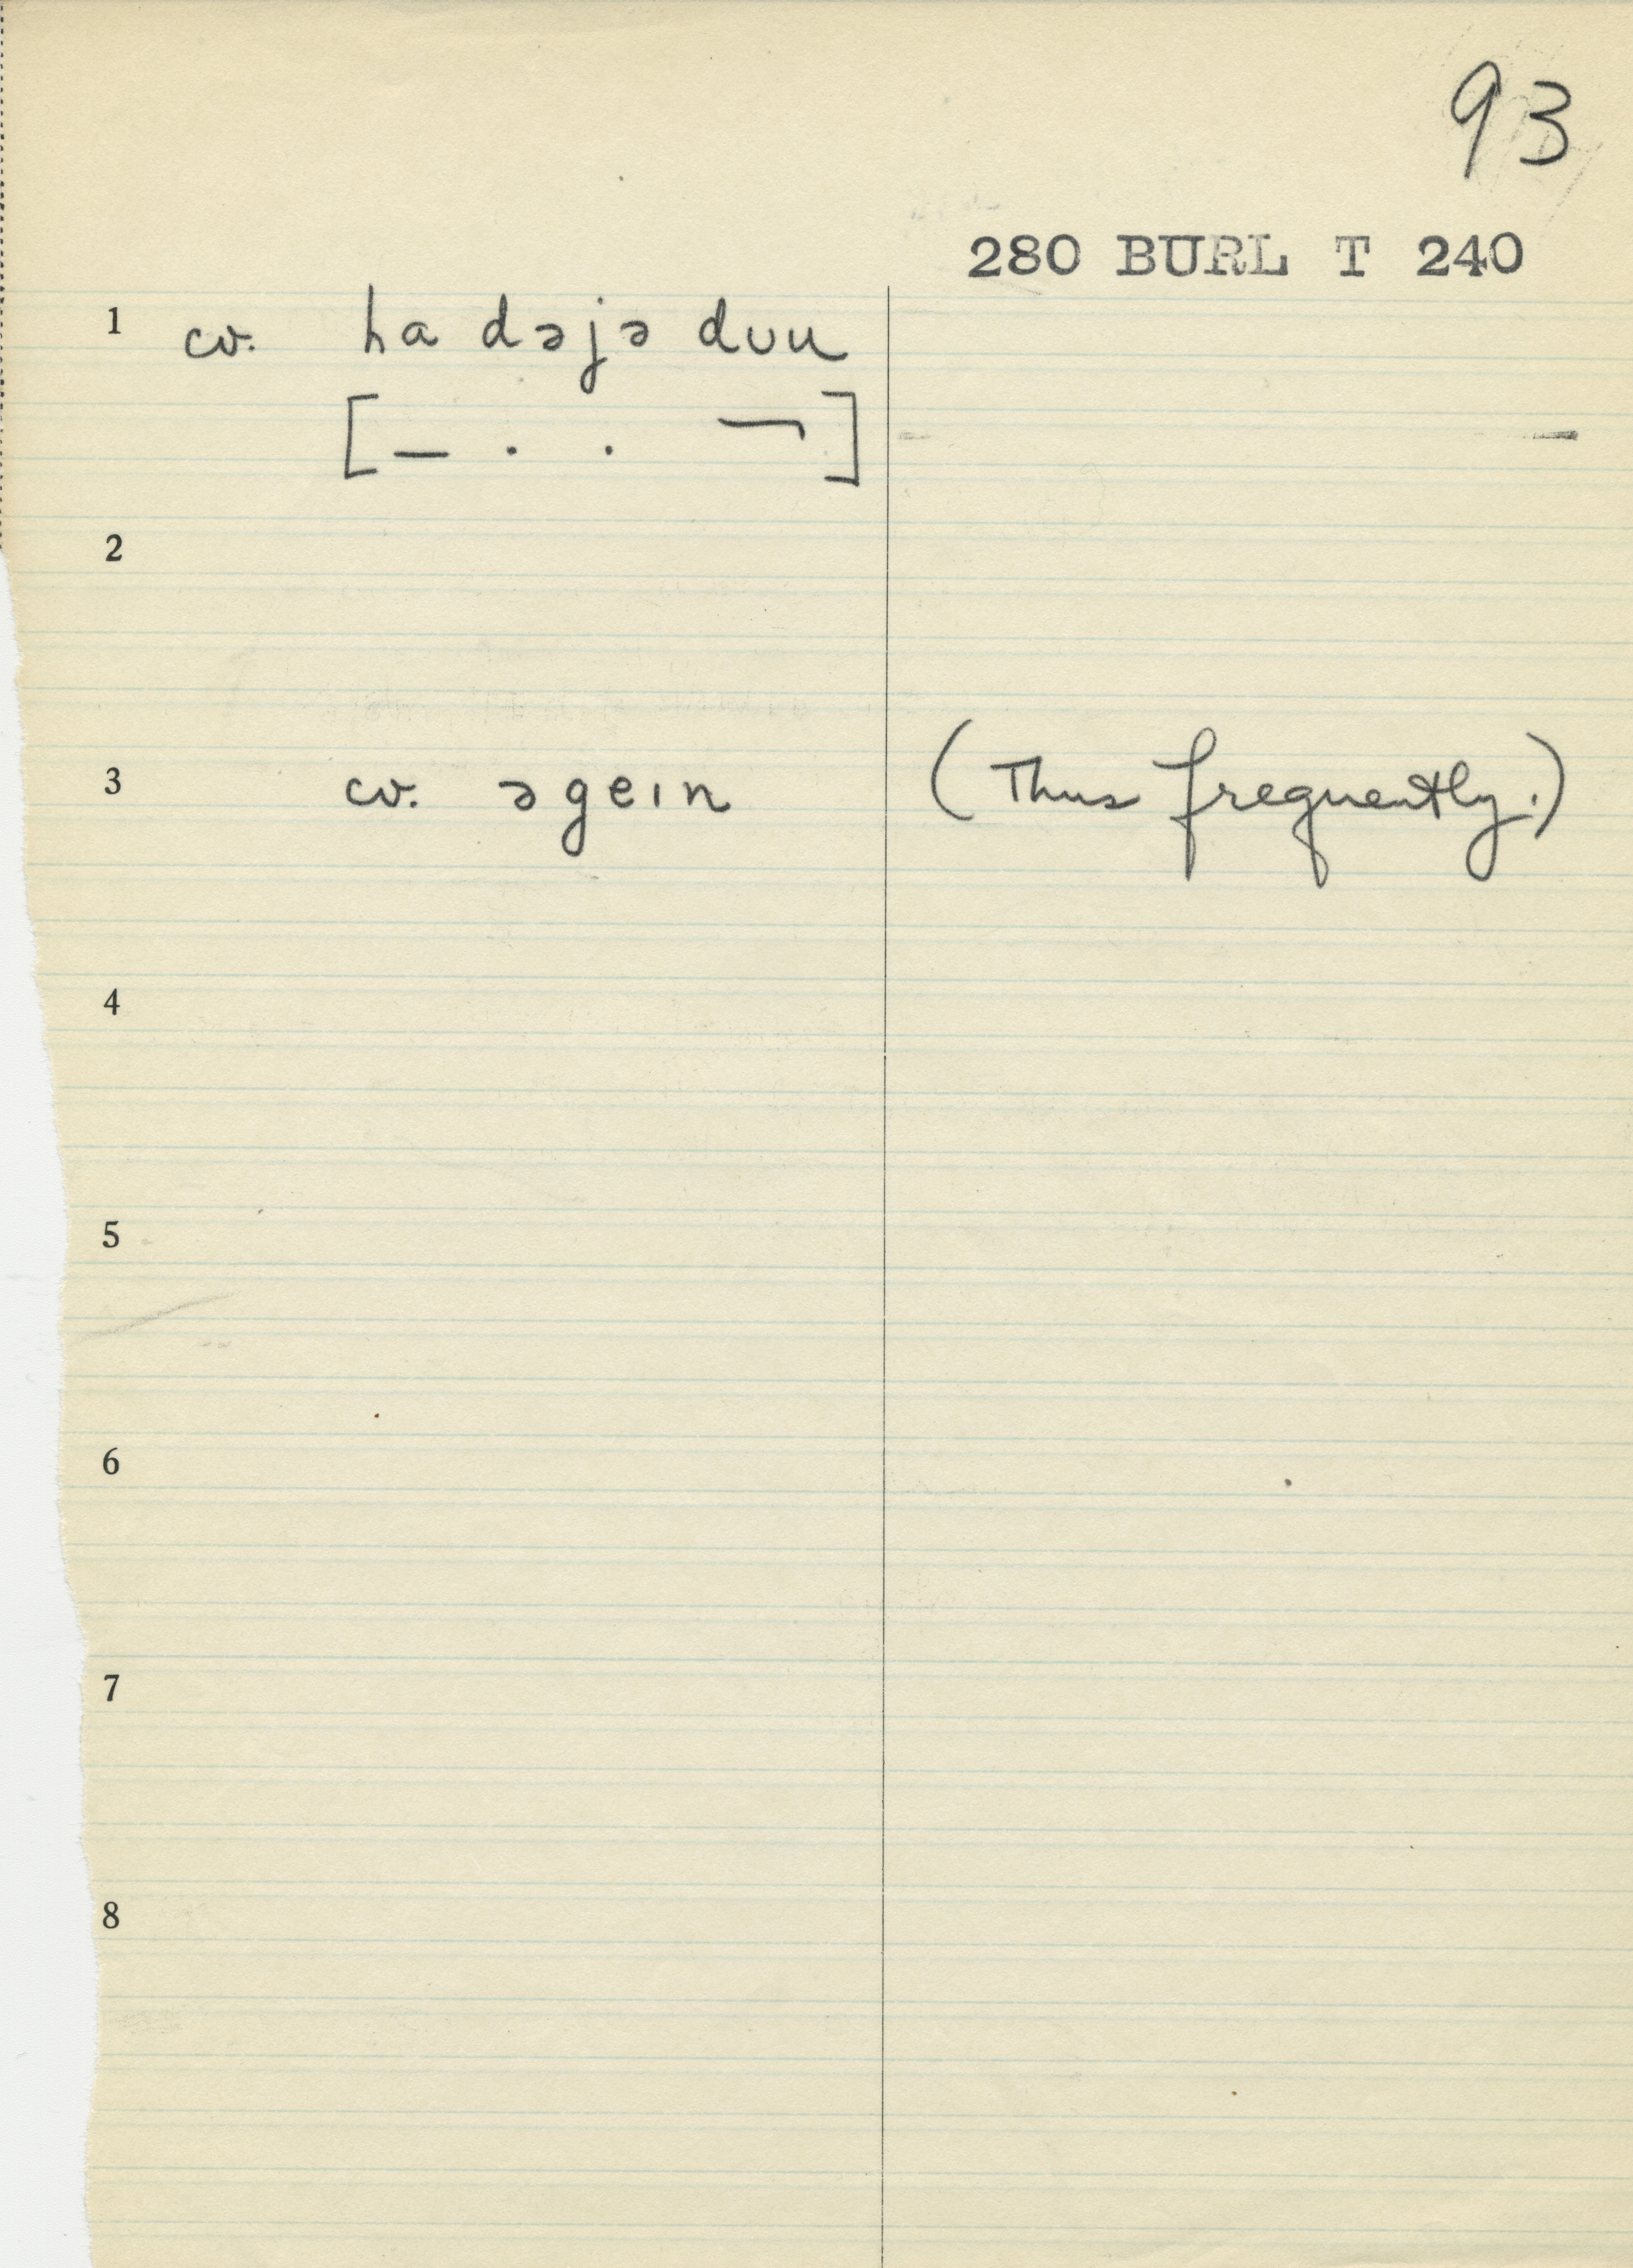 93
280 BURL T 240
1 cv. ha dəjə dʊu
[— . . ¬]
2
3 cv. əgeın (Thus frequently.)
4
5
6
7
8